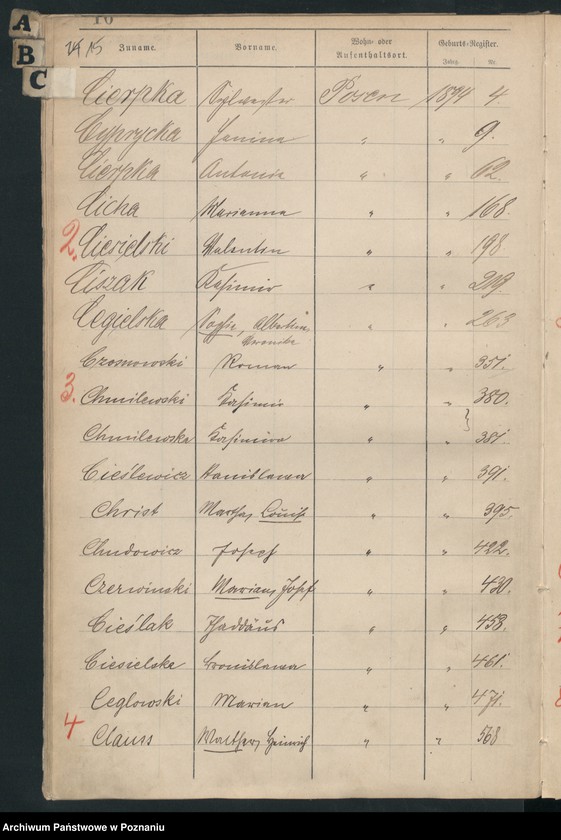 A
B
C
16
14 15
Zuname. Vorname. Wohn- oder Aufenthaltsort. Geburts-Register.
Jahrg. Nr.
Cierpka Sylwester Posen 1894 4.
Cyprycka Janina " " 9.
Cierpka Antonie " " 62.
Cicha Marianna " " 168.
2. Ciesielski Valentin " " 198.
Ciszak Kasimir " " 219.
Cegielska Sophie, Albertine " " 263
Veronika
Czosnowski Roman " " 351.
3. Chmilewski Kasimir " " 380.
Chmilewska Kasimira " " 381.
Cieślewicz Stanislawa " " 391.
Christ Martha, Louise " " 395.
Chudowicz Josef " " 422.
Czerwinski Marian, Josef " " 430.
Cieślak Thaddäus " " 458.
Ciesielska Bronislawa " " 461.
Ceglowski Marian " " 471.
4 Clauss Walther, Heinrich " " 568
Archiwum Państwowe w Poznaniu